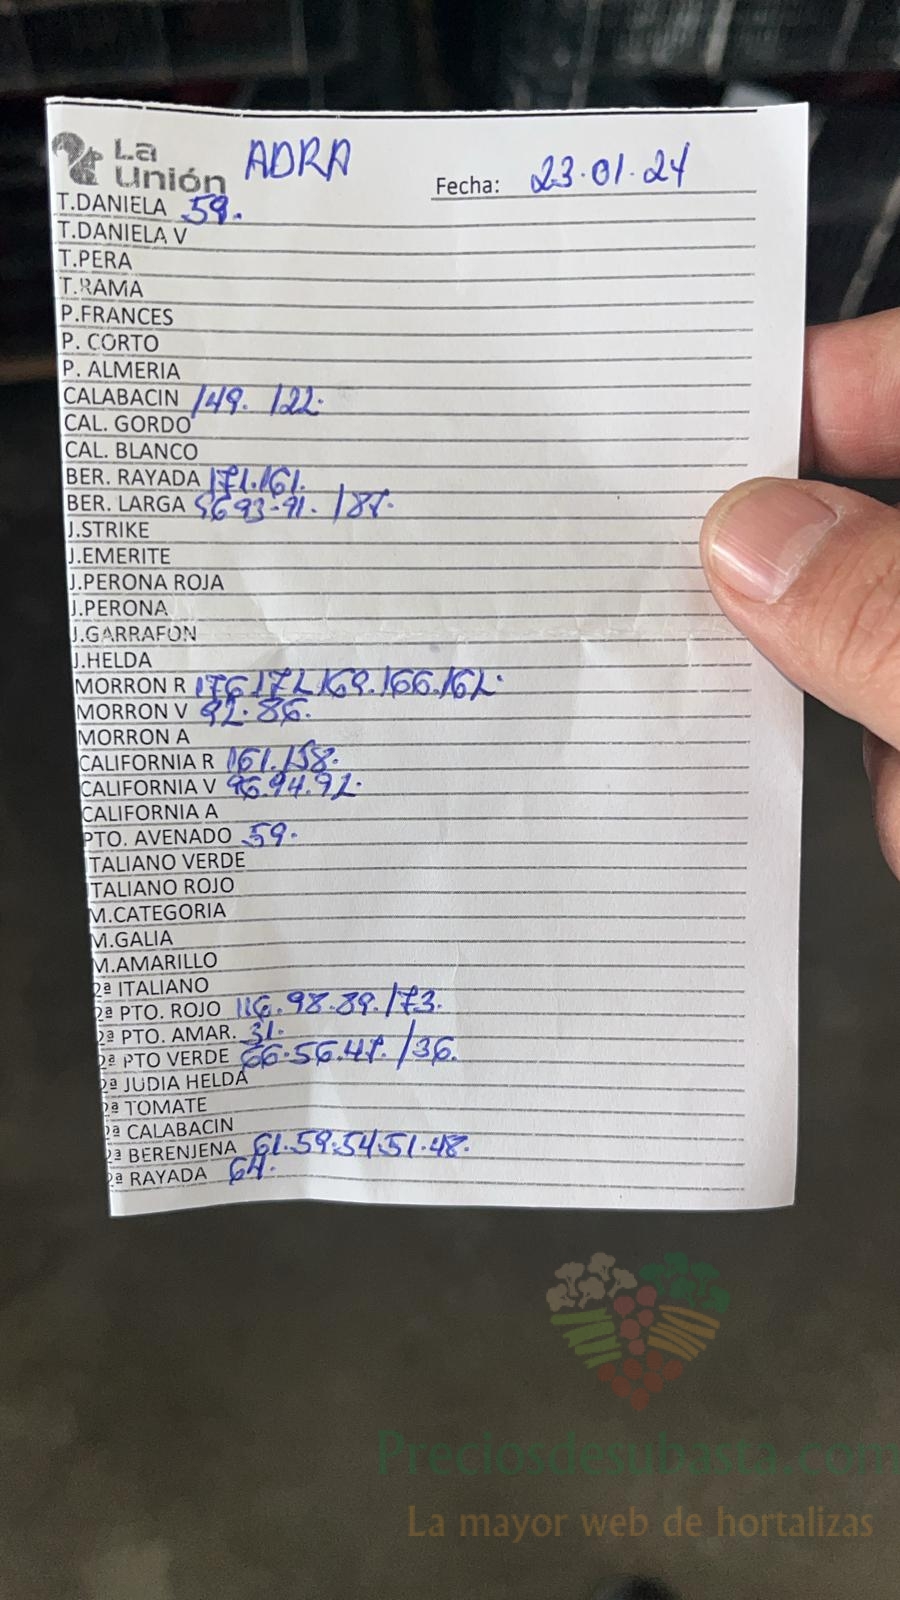 La
Unión
ADRA
Fecha: 23.01.24
T.DANIELA 59.
T.DANIELA V
T.PERA
T.RAMA
P.FRANCES
P. CORTO
P. ALMERIA
CALABACIN /49. 122.
CAL. GORDO
CAL. BLANCO
BER. RAYADA 171.161.
BER. LARGA 93-91. /87.
J.STRIKE
J.EMERITE
J.PERONA ROJA
J.PERONA
J.GARRAFON
J.HELDA
MORRON R 176.172.169.166.162.
MORRON V 92.86.
MORRON A
CALIFORNIA R 161.158.
CALIFORNIA V 96.94.92.
CALIFORNIA A
PTO. AVENADO 59.
ITALIANO VERDE
ITALIANO ROJO
M.CATEGORIA
M.GALIA
M.AMARILLO
2ª ITALIANO
2ª PTO. ROJO 116.98.89./73.
2ª PTO. AMAR. 31.
2ª PTO VERDE 66.56.47./36.
2ª JUDIA HELDA
2ª TOMATE
2ª CALABACIN
2ª BERENJENA 61.59.54.51.48.
2ª RAYADA 64.
Preciosdesubasta.com
La mayor web de hortalizas